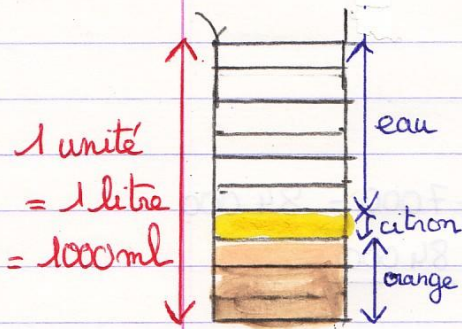 1 unité
= 1 litre
= 1000ml
eau
citron
orange